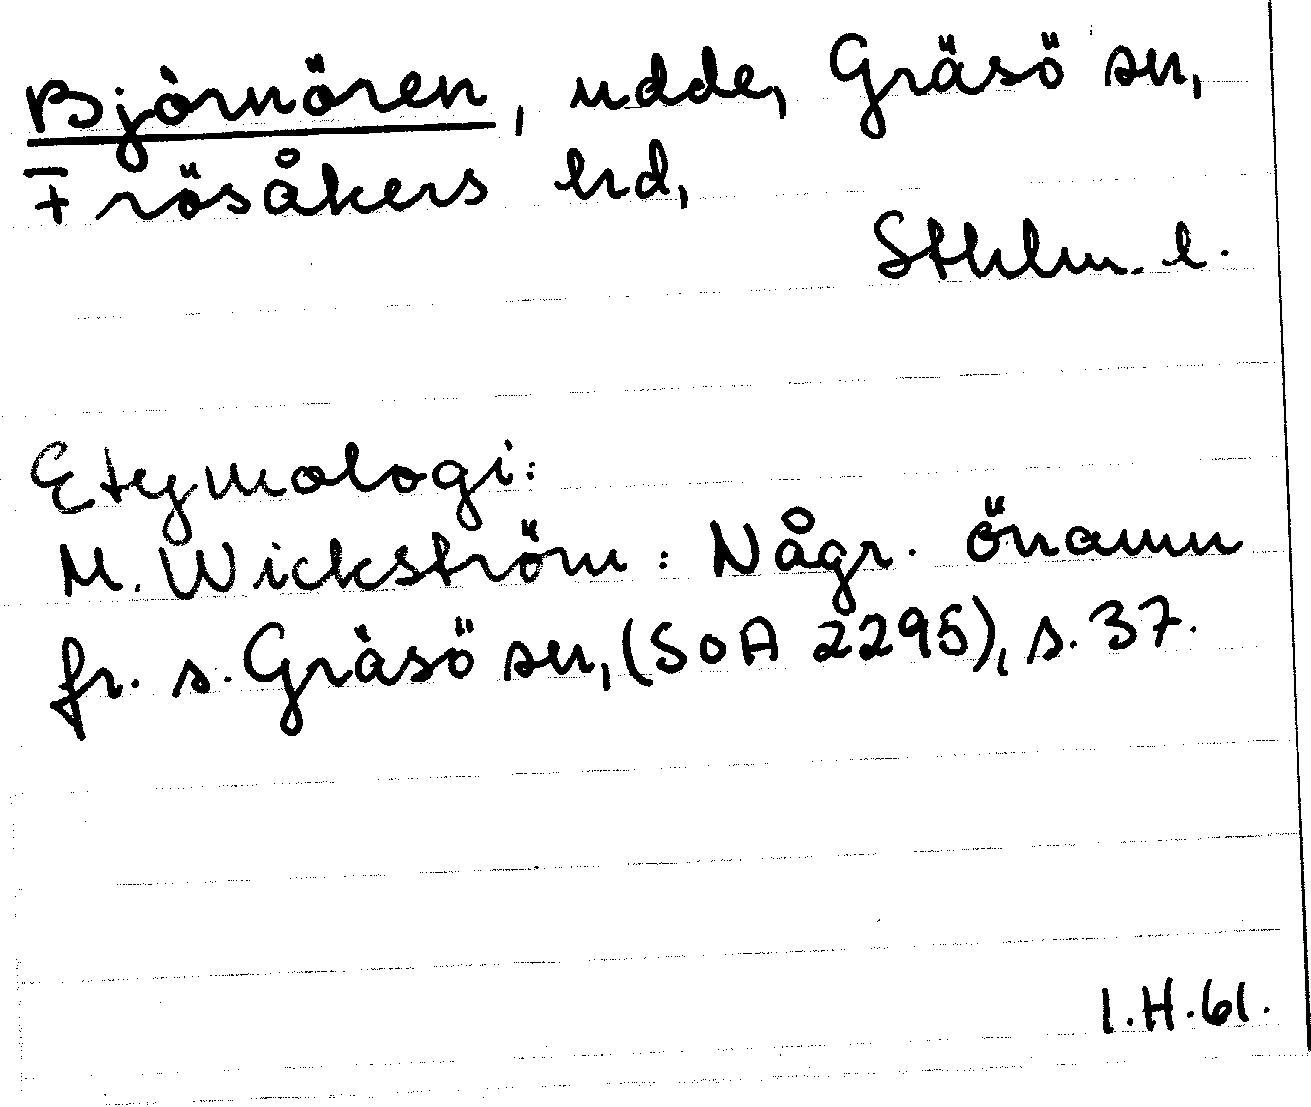 Björnören, udde, Gräsö sn,
Frösåkers hd,
Sthlm. l.
Etymologi:
M. Wickström: Någr. önamn
fr. s. Gräsö sn, (SOA 2295), s. 37.
I.H.61.